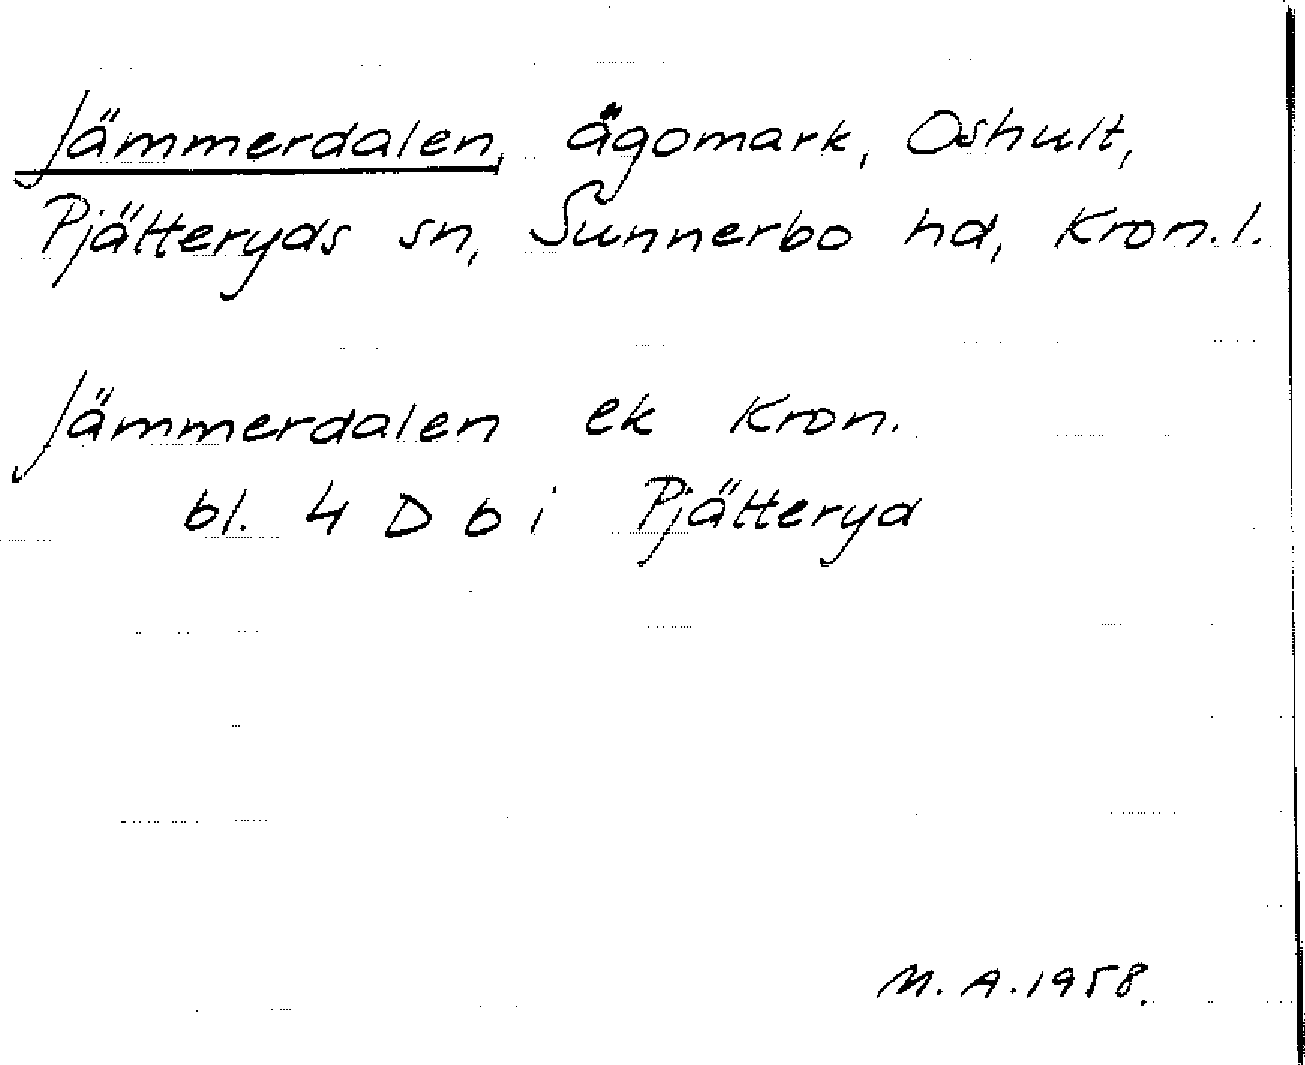 Jämmerdalen, ägomark, Oshult,
Pjätteryds sn, Sunnerbo hd, Kron. l.
Jämmerdalen ek Kron.
bl. 4 D b i Pjätteryd
M. A. 1958.